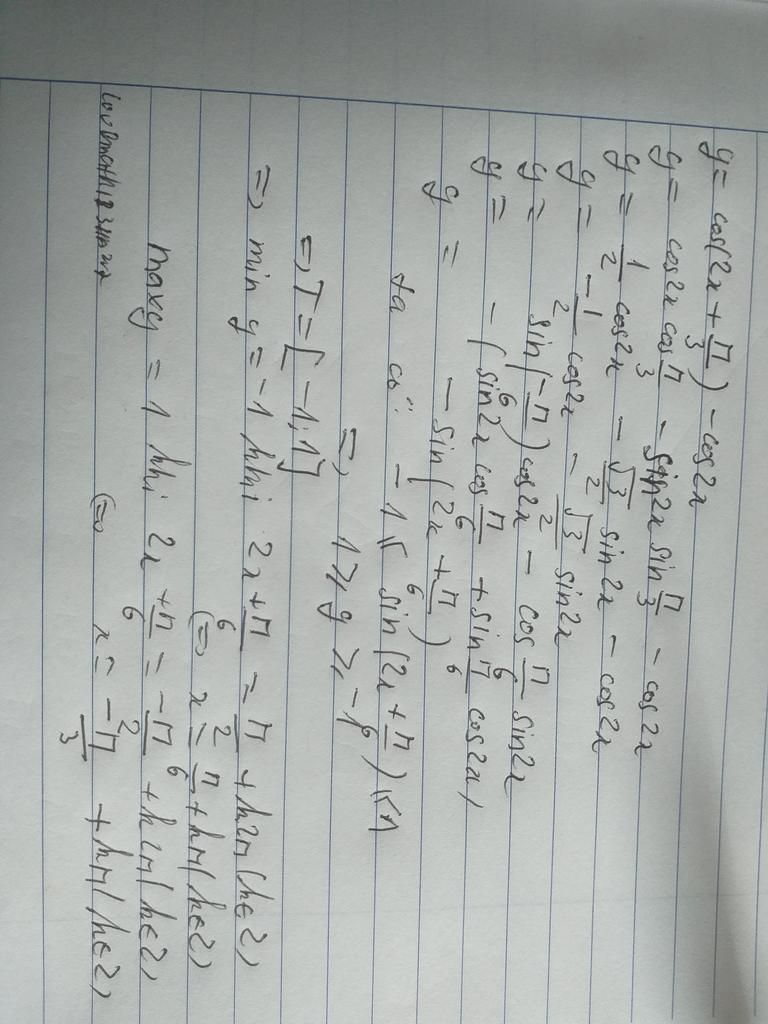 y = cos(2x + π/3) - cos2x
y = cos2x cos π/3 - sin2x sin π/3 - cos2x
y = 1/2 cos2x - √3/2 sin2x - cos2x
y = -1/2 cos2x - √3/2 sin2x
y = sin(-π/6) cos2x - cos π/6 sin2x
y = -(sin2x cos π/6 + sin π/6 cos2x)
y = -sin(2x + π/6)
ta có: -1 ≤ sin(2x + π/6) ≤ 1
=> 1 ≥ y ≥ -1
=> T = [-1;1]
=> min y = -1 khi 2x + π/6 = π/2 + k2π (k∈Z)
<=> x = π/6 + kπ (k∈Z)
max y = 1 khi 2x + π/6 = -π/2 + k2π (k∈Z)
<=> x = -π/3 + kπ (k∈Z)